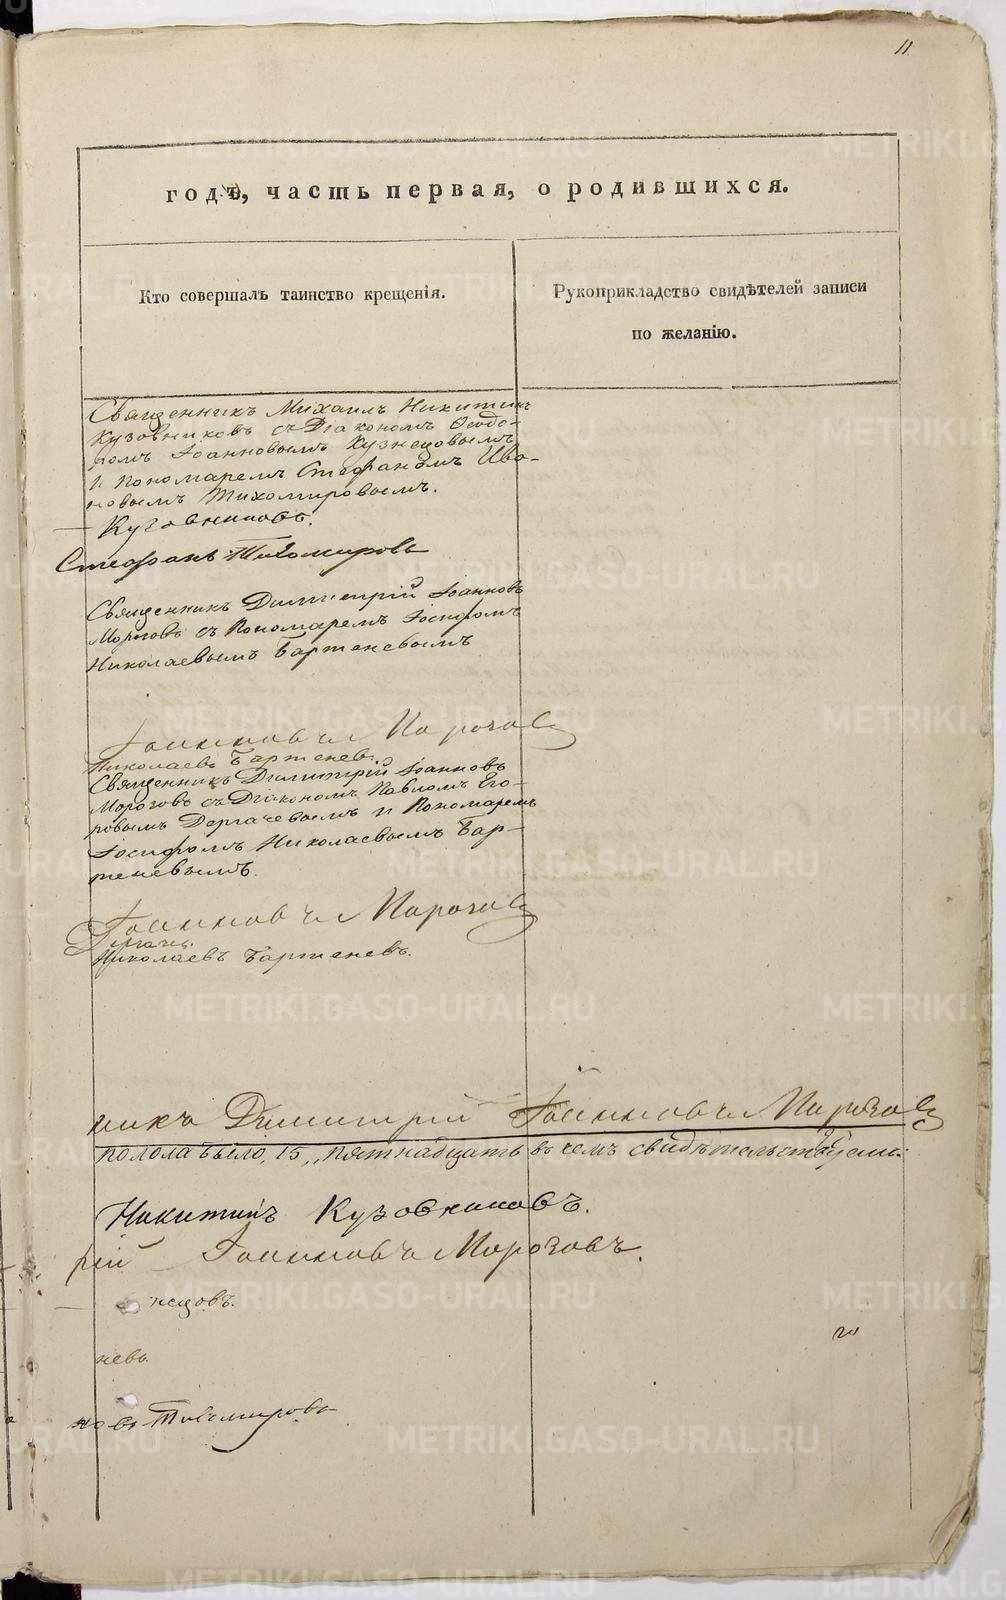 11.
годъ, часть первая, о родившихся.
Кто совершалъ таинство крещенія.
Рукоприкладство свидѣтелей записи
по желанію.
Священникъ Михаилъ Никитинъ
Кузовниковъ съ Діакономъ Ѳеодо-
ромъ Іоанновымъ Кузнецовымъ
и пономаремъ Стефаномъ Ива-
новымъ Тихомировымъ.
Кузовниковъ.
Стефанъ Тихомировъ
Священникъ Димитрій Іоанновъ
Морозовъ съ Пономаремъ Іосифомъ
Николаевымъ Бартеневымъ
Іоанновъ Морозовъ
Николаевъ Бартенев.
Священникъ Димитрій Іоанновъ
Морозовъ съ Діакономъ Павломъ Его-
ровымъ Дергачевымъ и Пономаремъ
Іосифомъ Николаевымъ Бар-
теневымъ.
Іоанновъ Морозовъ
Дергачевъ.
Николаевъ Бартеневъ.
никъ Димитрій Іоанновъ Морозовъ
пола было, 15, пятнадцать въ чемъ свидѣтельствуемъ:
Никитинъ Кузовниковъ.
рій Іоанновъ Морозовъ.
нецовъ.
невъ.
новъ Тихомировъ
METRIKI.GASO-URAL.RU